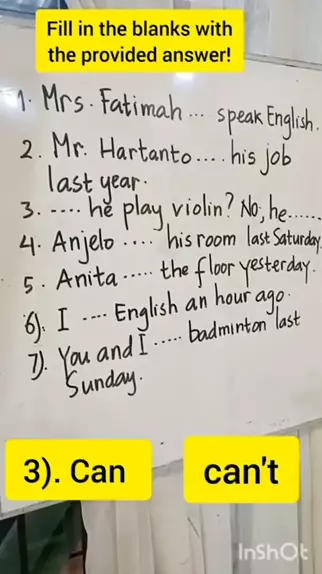 Fill in the blanks with
the provided answer!
1. Mrs. Fatimah ... speak English.
2. Mr. Hartanto.... his job
last year.
3. .... he play violin? No, he......
4. Anjelo .... his room last Saturday.
5. Anita ..... the floor yesterday.
6). I .... English an hour ago.
7). You and I ..... badminton last
Sunday.
3). Can can't
InShOt